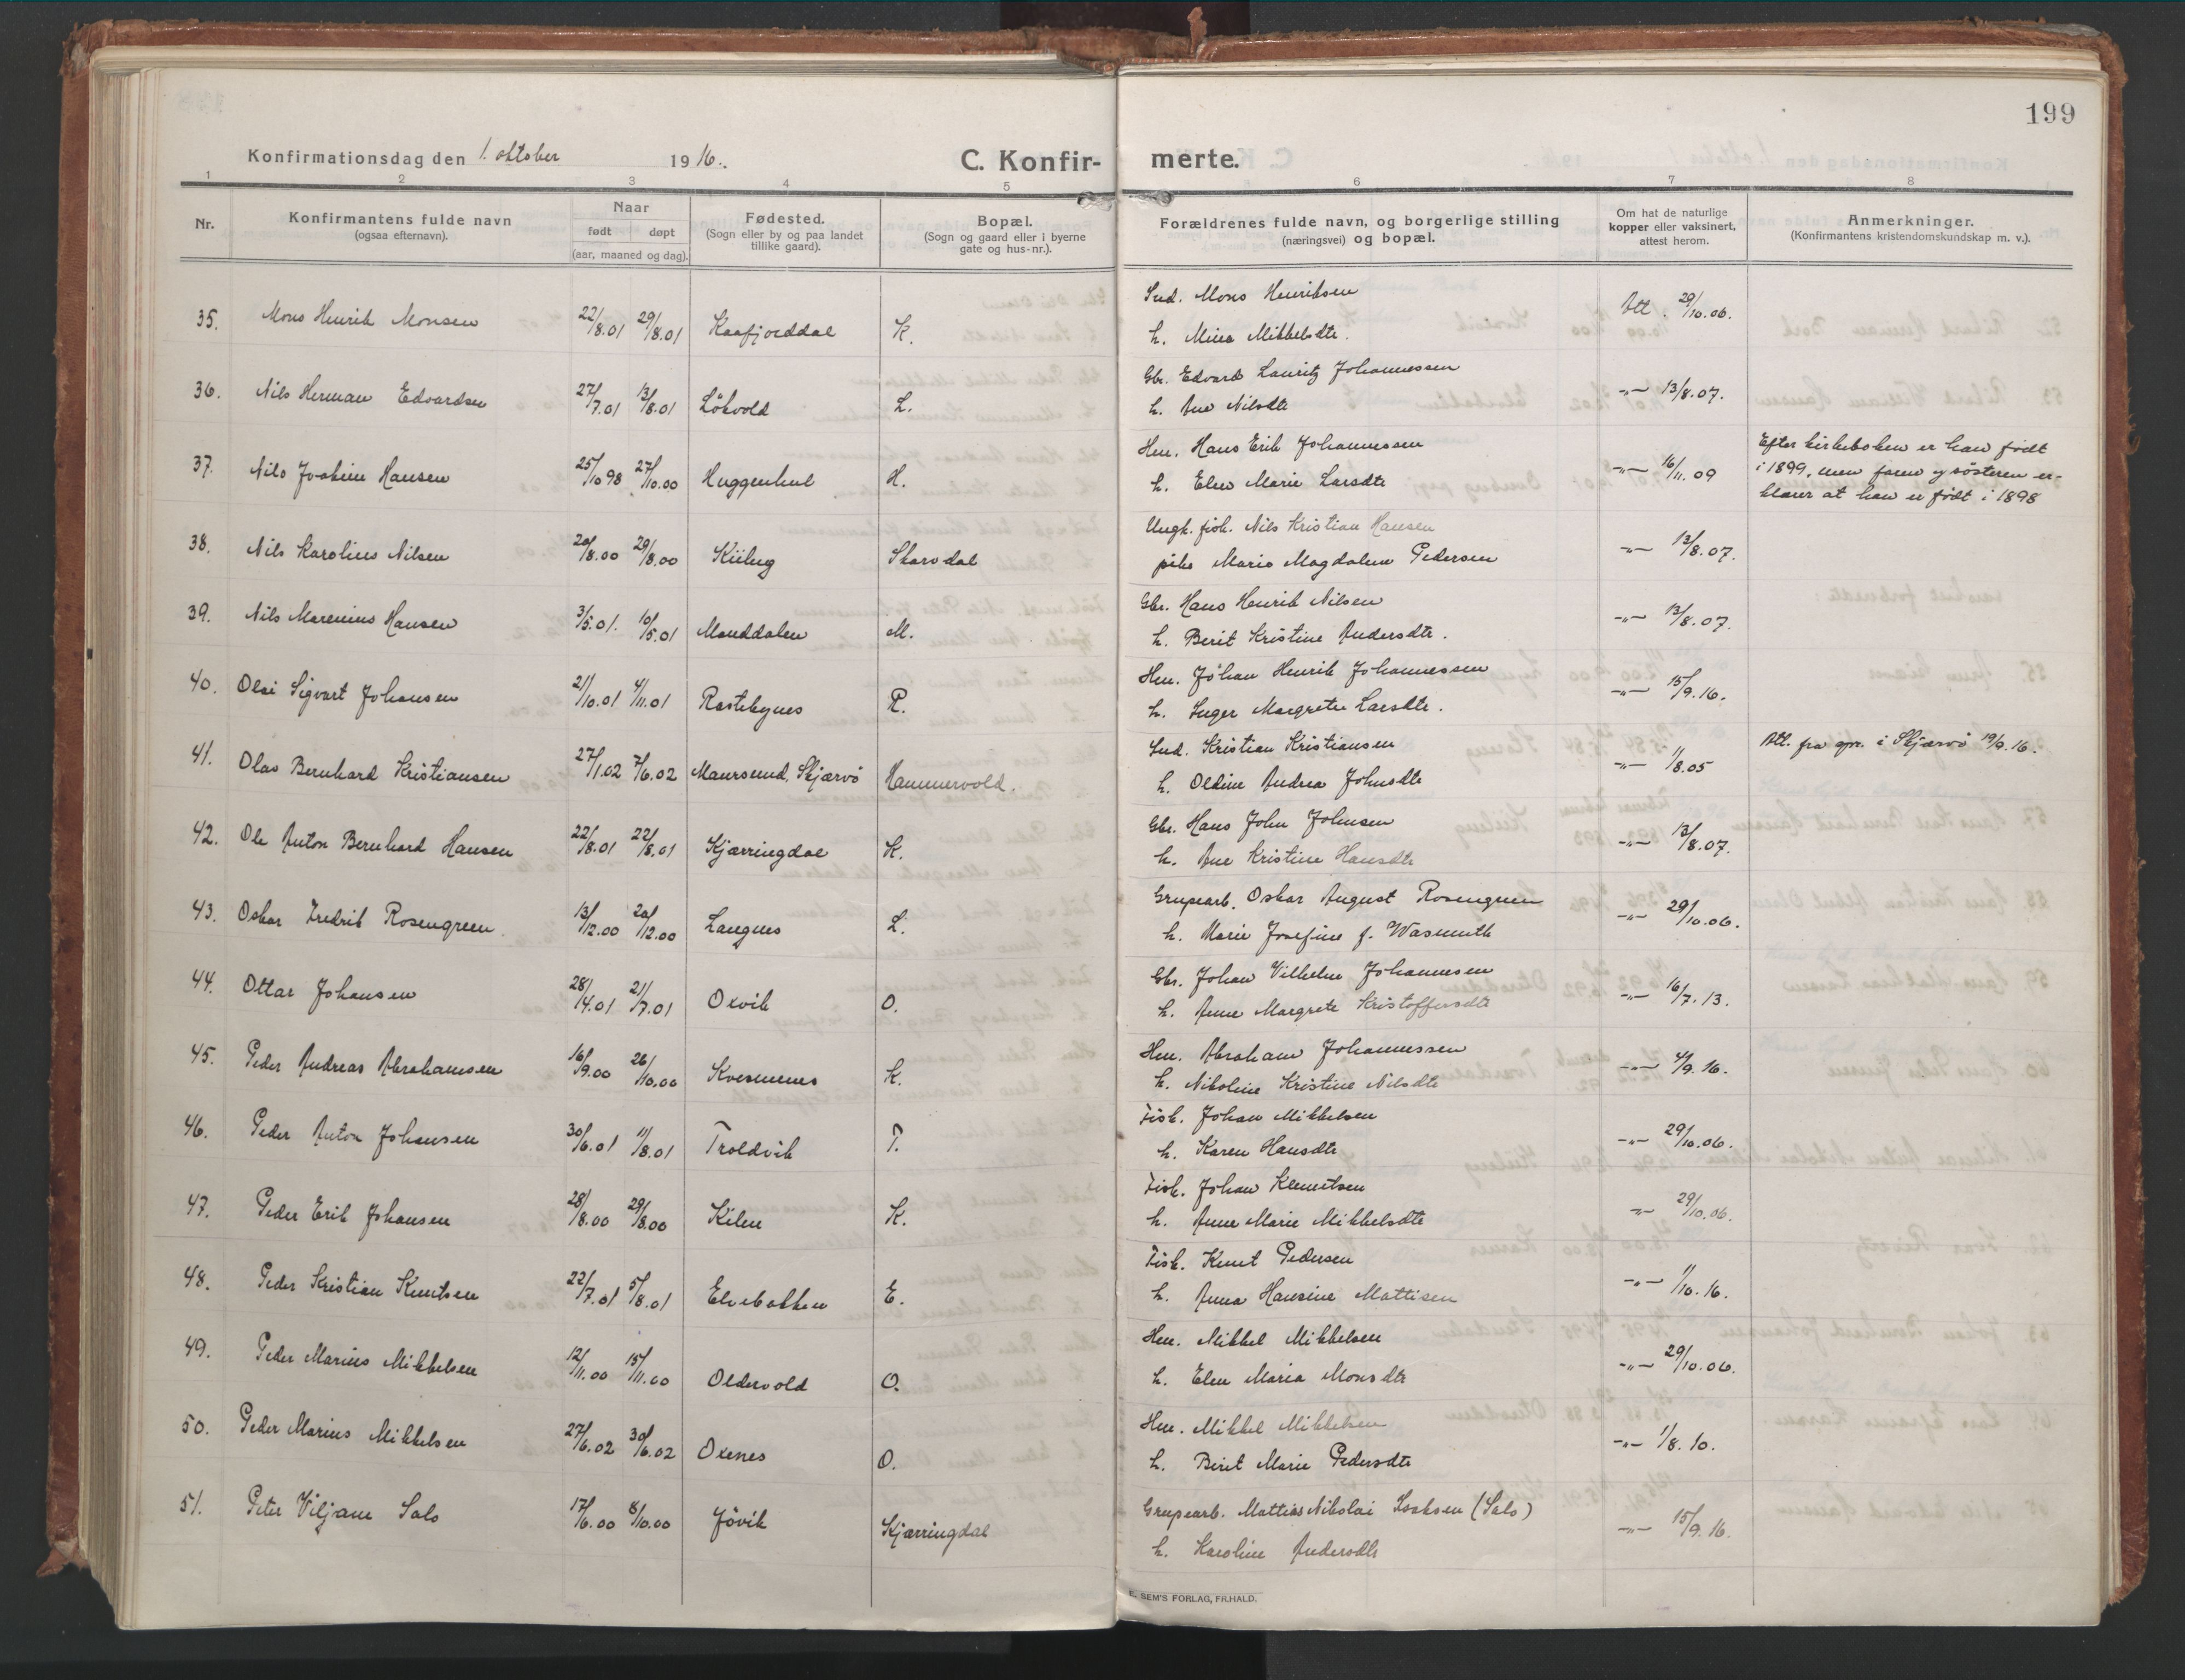 199
Konfirmationsdag den 1. oktober 1916. C. Konfirmerte.
1 2 3 4 5 6 7 8
Nr.
Konfirmantens fulde navn
(ogsaa efternavn).
Naar
født døpt
(aar, maaned og dag).
Fødested.
(Sogn eller by og paa landet
tillike gaard).
Bopæl.
(Sogn og gaard eller i byerne
gate og hus-nr.).
Forældrenes fulde navn, og borgerlige stilling
(næringsvei) og bopæl.
Om hat de naturlige
kopper eller vaksinert,
attest herom.
Anmerkninger.
(Konfirmantens kristendomskundskap m. v.).
35. Mons Henrik Monsen 22/8.01 29/8.01 Kaafjorddal K. Ind. Mons Henriksen Att. 29/10.06.
h. Mina Mikkelsdtr.
36. Nils Herman Edvardsen 27/7.01 13/8.01 Løkvold L. Gbr. Edvard Lauritz Johannessen -"- 13/8.07.
h. Ane Nilsdtr
37. Nils Joakim Hansen 25/10 98 27/10.00 Huggenhul H. Hm. Hans Erik Johannessen -"- 16/11.09
h. Elen Marie Larsdtr
Efter kirkeboken er han født
i 1899, men faren og søsteren er-
klærer at han er født i 1898
38. Nils Karolius Nilsen 20/8.00 29/8.00 Kiilung Skarsdal Ungk. fisk. Nils Kristian Hansen -"- 13/8.07.
pike Marie Magdalene Pedersen
39. Nils Marenius Hansen 3/5.01. 10/5.01 Manddalen M. Gbr. Hans Henrik Nilsen -"- 13/8.07.
h. Berit Kristine Andersdtr.
40. Olai Sigvart Johansen 21/10.01 4/11.01 Rastebynes R. Hm. Johan Henrik Johannessen -"- 15/9.16.
h. Inger Margrete Larsdtr.
41. Olas Bernhard Kristiansen 27/1.02 7/6.02 Maursund, Skjærvø Hammervold. Ind. Kristian Kristiansen -"- 1/8.05
h. Oldine Andrea Johnsdtr
Att. fra spr. i Skjærvø 19/9.16.
42. Ole Anton Bernhard Hansen 22/8.01 22/8.01 Kjærringdal K. Gbr. Hans John Johnsen -"- 13/8.07.
h. Ane Kristine Hansdtr
43. Oskar Fredrik Rosengreen 13/12.00 20/12.00 Langnes L. Grupearb. Oskar August Rosengreen -"- 29/10.06.
h. Marie Josefine f. Wasmuth
44. Ottar Johansen 28/4.01 21/7.01 Oxvik O. Gbr. Johan Vilhelm Johannesen -"- 16/7.13.
h. Anne Margrete Kristoffersdtr
45. Peder Andreas Abrahamsen 16/9.00 26/10.00 Kvesmenes K. Hm. Abraham Johannessen -"- 4/9.16.
h. Nikoline Kristine Nilsdtr
46. Peder Anton Johansen 30/6.01 11/8.01 Troldvik T. Fisk. Johan Mikkelsen -"- 29/10.06.
h. Karen Hansdtr
47. Peder Erik Johansen 28/8.00 29/8.00 Kilen K. Fisk. Johan Klemetsen -"- 29/10.06.
h. Anne Marie Mikkelsdtr
48. Peder Kristian Knutsen 22/7.01 5/8.01 Elvebakken E. Fisk. Knut Pedersen -"- 1/10.16.
h. Anna Hansine Mattisen
49. Peder Marius Mikkelsen 12/11.00 15/11.00 Oldervold O. Hm. Mikkel Mikkelsen -"- 29/10.06.
h. Elen Maria Monsdtr
50. Peder Marius Mikkelsen 27/6.02 30/6.02 Oxnes O. Hm. Mikkel Mikkelsen -"- 1/8.10.
h. Berit Marie Pedersdtr
51. Peter Viljam Salo 17/6.00 8/10.00 Jøvik Kjærringdal Grupearb. Mattias Nikolai Isaksen (Salo) -"- 15/9.16.
h. Karoline Andersdtr
E. SEM'S FORLAG, FR.HALD.